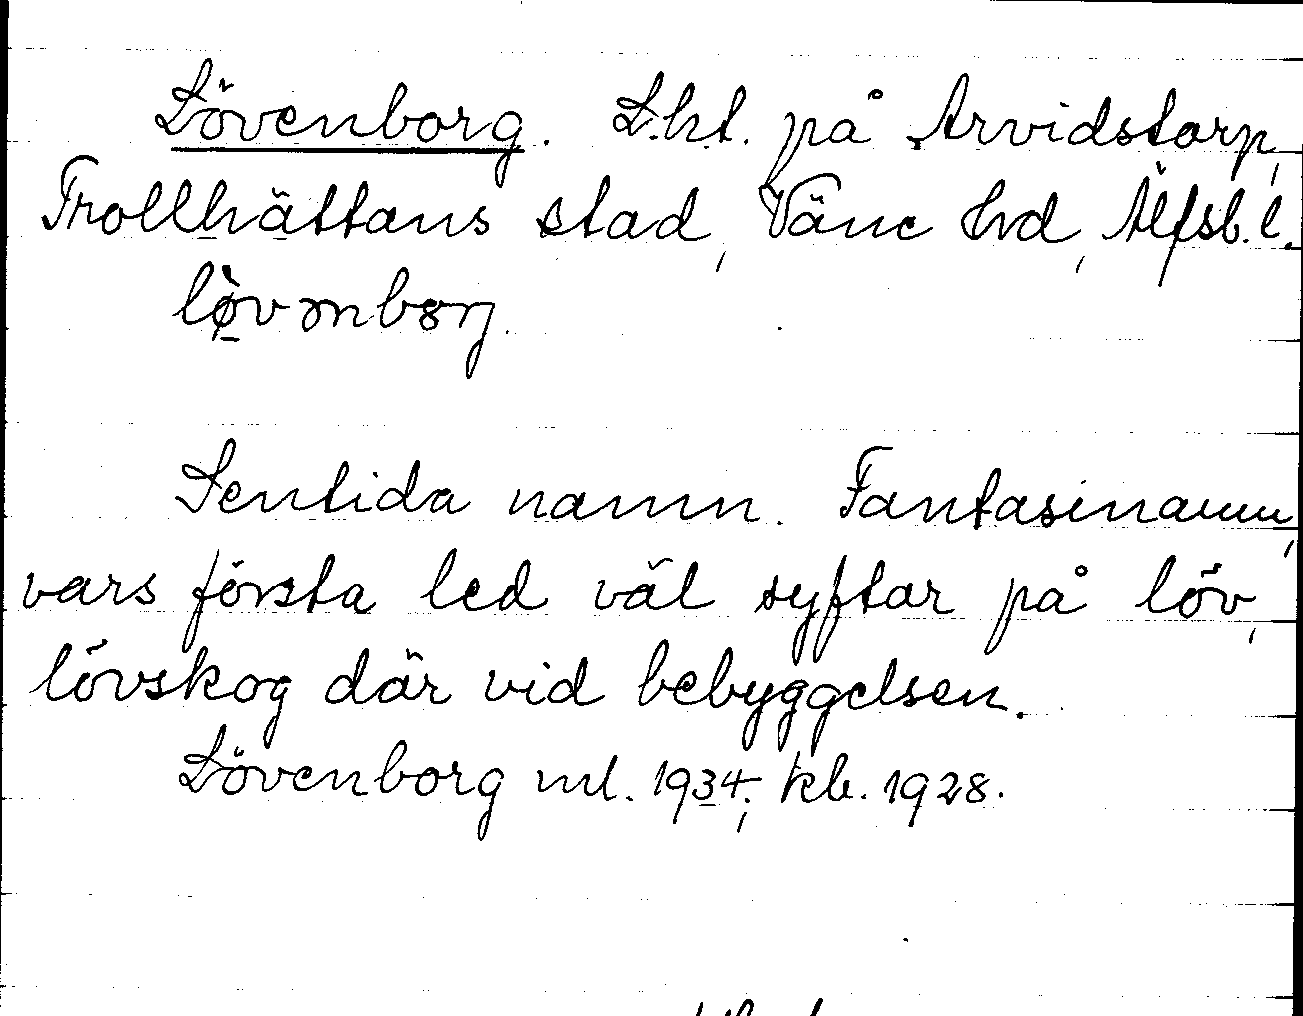 Lövenborg. L.h.t. på Arvidstorp,
Trollhättans stad, Väne hd, Älfsb. l.
Sentida namn. Fantasinamn,
vars första led väl syftar på löv,
lövskog där vid bebyggelsen.
Lövenborg ml. 1934; kb. 1928.